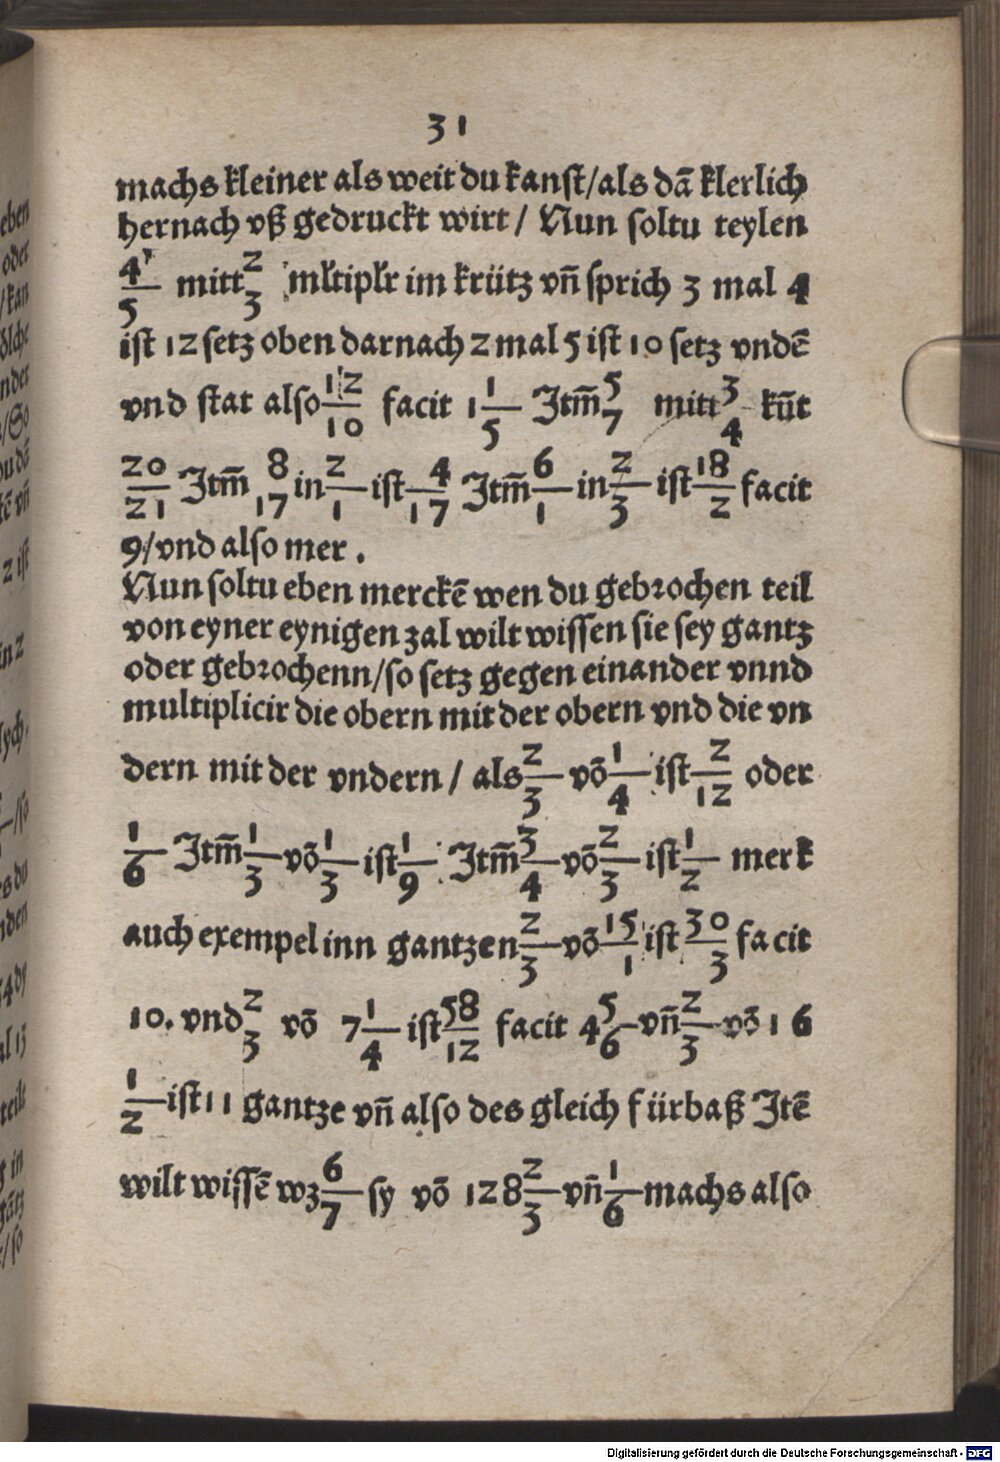 31
machs kleiner als weit du kanst/als dã klerlich
hernach vß gedruckt wirt / Nun soltu teylen
4/5 mitt 2/3 mltiplr im krütz vñ sprich 3 mal 4
ist 12 setz oben darnach 2 mal 5 ist 10 setz vndẽ
vnd stat also 12/10 facit 1 1/5 Itm̃ 5/7 mitt 3/4 kũt
20/21 Itm̃ 8/17 in 2/1 ist 4/17 Itm̃ 6/1 in 2/3 ist 18/2 facit
9/vnd also mer .
Nun soltu eben merckẽ wen du gebrochen teil
von eyner eynigen zal wilt wissen sie sey gantz
oder gebrochenn/so setz gegen einander vnnd
multiplicir die obern mit der obern vnd die vn
dern mit der vndern / als 2/3 võ 1/4 ist 2/12 oder
1/6 Itm̃ 1/3 võ 1/3 ist 1/9 . Itm̃ 3/4 võ 2/3 ist 1/2 merk
auch exempel inn gantzen 2/3 võ 15/1 ist 30/3 facit
10. vnd 2/3 võ 7 1/4 ist 58/12 facit 4 5/6 vñ 2/3 võ 16
1/2 ist 11 gantze vñ also des gleich fürbaß Itẽ
wilt wissẽ wz 6/7 sy võ 128 2/3 vñ 1/6 machs also
eben
oder
/kan
nder
/So
u dã
tẽ vñ
2 ist
in 2
lych.
/so
es du
nden
teilt
in
gãtz
/so
Digitalisierung gefördert durch die Deutsche Forschungsgemeinschaft - DFG